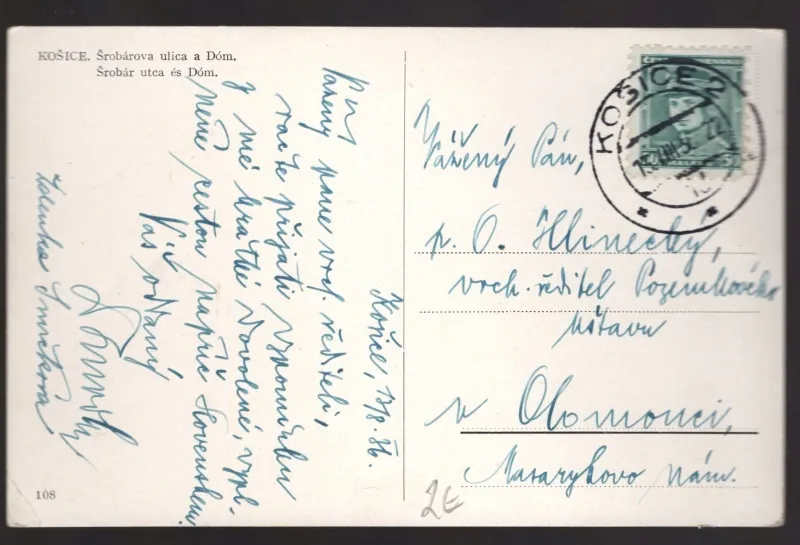 KOŠICE. Šrobárova ulica a Dóm.
Šrobár utca és Dóm.
Košice, 13/8. 36.
Vážený pane vrch. řediteli,
račte přijati vzpomínku
z mé krátké dovolené, vypl-
něné cestou napříč Slovenskem
Váš oddaný
Zdenka
108
KOŠICE 2
Vážený Pán,
p. O. Hlinecký,
vrch. ředitel Pozemkového
ústavu
v Olomouci,
Masarykovo nám.
2E